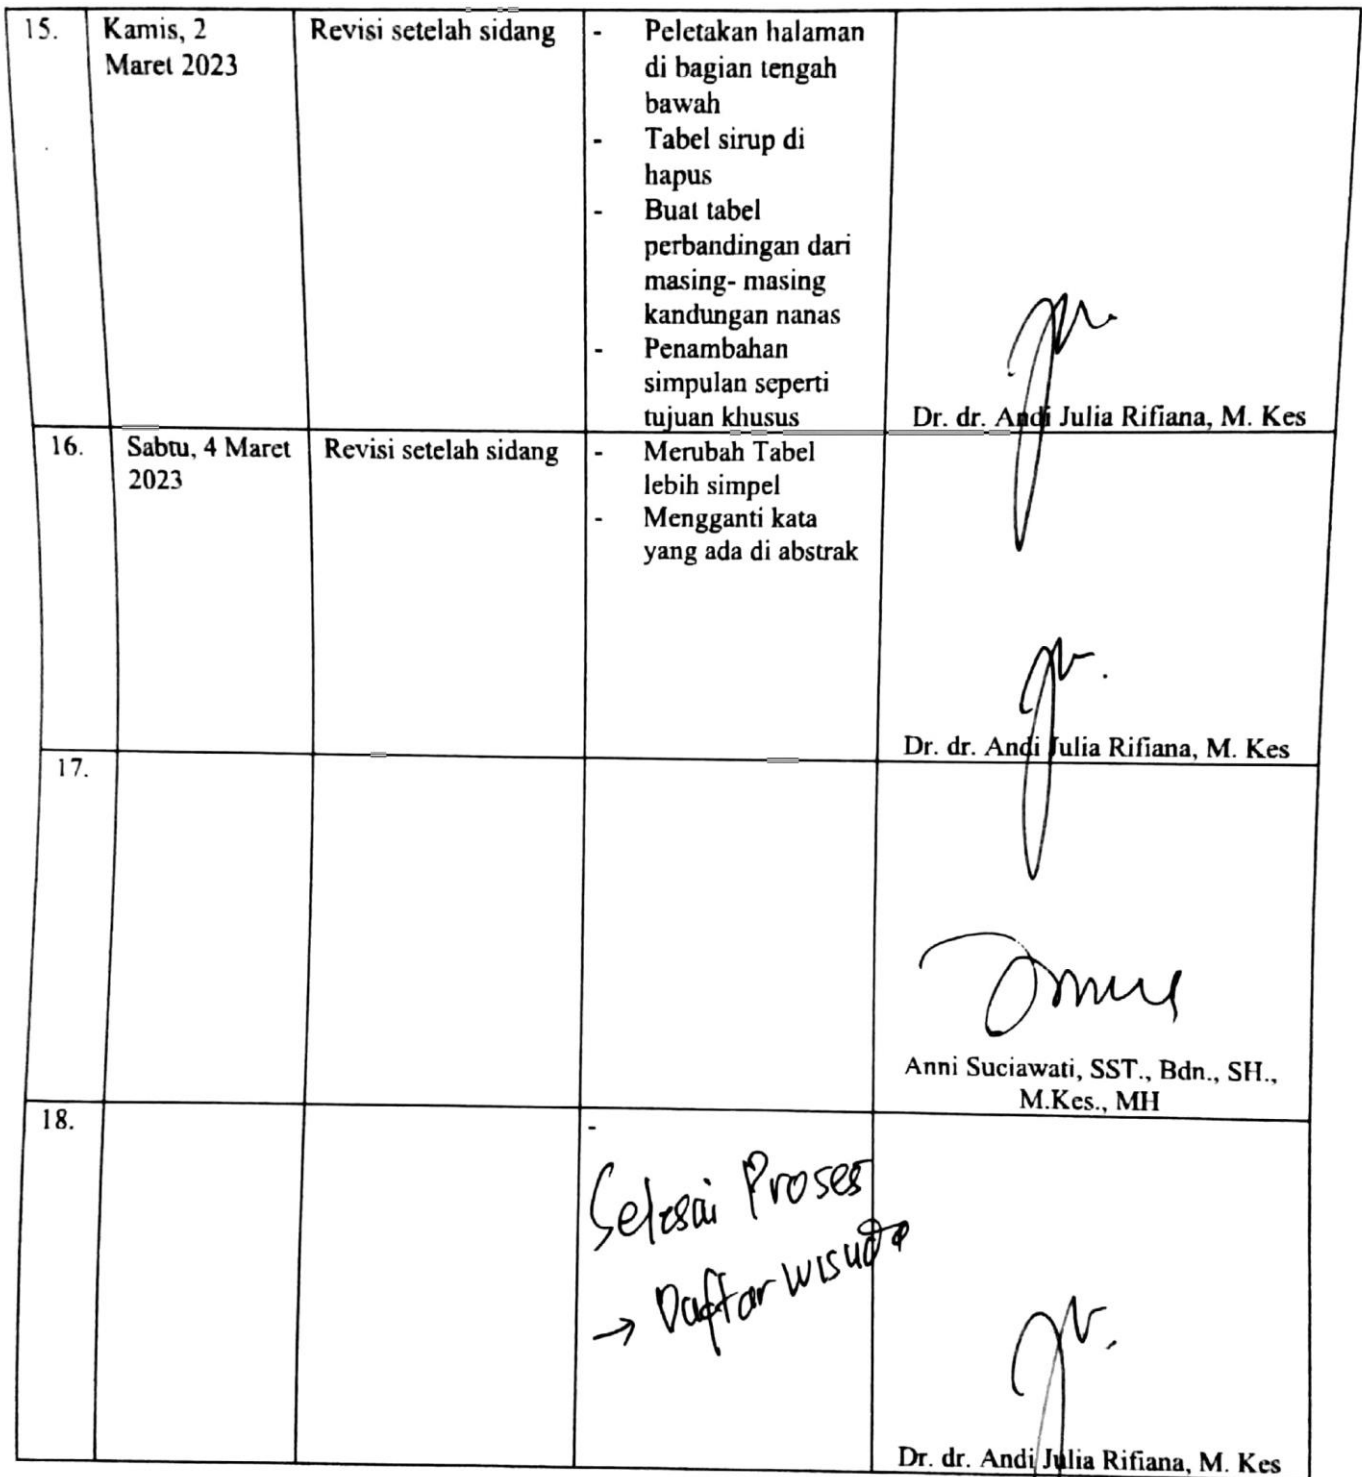 15.
Kamis, 2
Maret 2023
Revisi setelah sidang
- Peletakan halaman
di bagian tengah
bawah
- Tabel sirup di
hapus
- Buat tabel
perbandingan dari
masing- masing
kandungan nanas
- Penambahan
simpulan seperti
tujuan khusus
Dr. dr. Andi Julia Rifiana, M. Kes
16.
Sabtu, 4 Maret
2023
Revisi setelah sidang
- Merubah Tabel
lebih simpel
- Mengganti kata
yang ada di abstrak
Dr. dr. Andi Julia Rifiana, M. Kes
17.
Anni Suciawati, SST., Bdn., SH.,
M.Kes., MH
18.
-
Selesai Proses
→ Daftar wisuda
Dr. dr. Andi Julia Rifiana, M. Kes